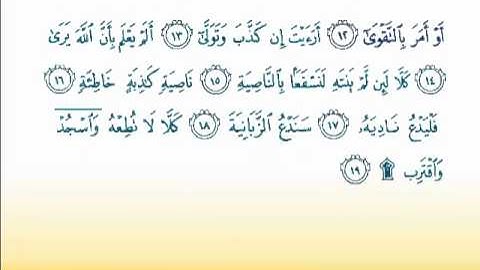 أَوْ أَمَرَ بِالنَّقْوَىٰٓ ١٢ أَرَءَيْتَ إِن كَذَّبَ وَتَوَلَّىٰٓ ١٣ أَلَمْ يَعْلَم بِأَنَّ اللَّهَ يَرَىٰ
١٤ كَلَّا لَئِن لَّمْ بَنتَهِ لَنَسْفَعًۢا بِالنَّاصِيَةِ ١٥ نَاصِيَةٍ كَٰذِبَةٍ خَاطِئَةٍ ١٦
فَلْيَدْعُ نَادِيَهُۥ ١٧ سَنَدْعُ الزَّبَانِيَةَ ١٨ كَلَّا لَا نُطِعْهُ وَاسْجُدْ
وَاقْتَرِب ۩ ١٩